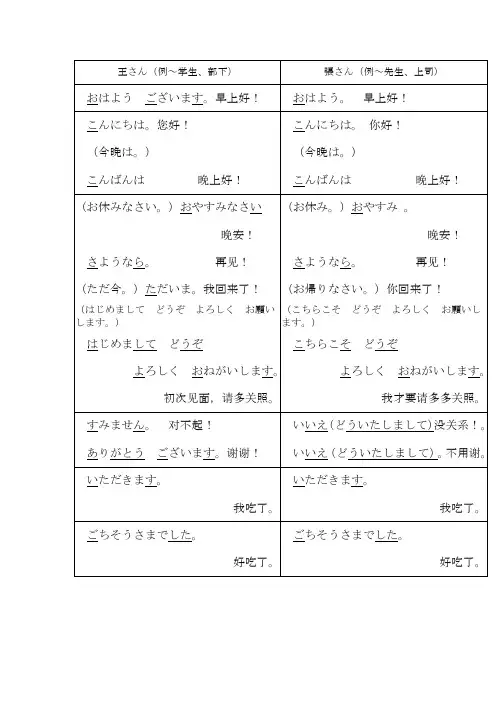 王さん（例～学生、部下）
張さん（例～先生、上司）
おはよう　ございます。早上好！
おはよう。　早上好！
こんにちは。您好！
（今晩は。）
こんばんは　　　晚上好！
こんにちは。　你好！
（今晩は。）
こんばんは　　　晚上好！
（お休みなさい。）おやすみなさい
晚安！
さようなら。　　　再见！
（ただ今。）ただいま。我回来了！
（はじめまして　どうぞ　よろしく　お願い
します。）
はじめまして　どうぞ
よろしく　おねがいします。
初次见面，请多关照。
（お休み。）おやすみ 。
晚安！
さようなら。　　　再见！
（お帰りなさい。）你回来了！
（こちらこそ　どうぞ　よろしく　お願いし
ます。）
こちらこそ　どうぞ
よろしく　おねがいします。
我才要请多多关照。
すみません。　对不起！
ありがとう　ございます。谢谢！
いいえ（どういたしまして）没关系！。
いいえ（どういたしまして）。不用谢。
いただきます。
我吃了。
いただきます。
我吃了。
ごちそうさまでした。
好吃了。
ごちそうさまでした。
好吃了。